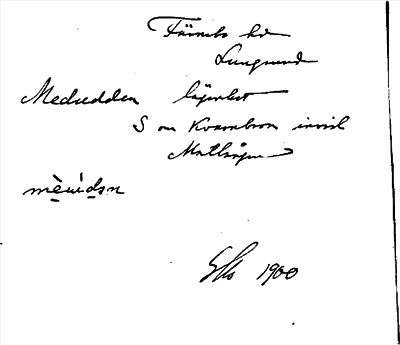 Färnebo hd
Lungsund
Medudden lägenhet
S om Kvarnbron invid
Mattsågen
mèᷠùdan
1900